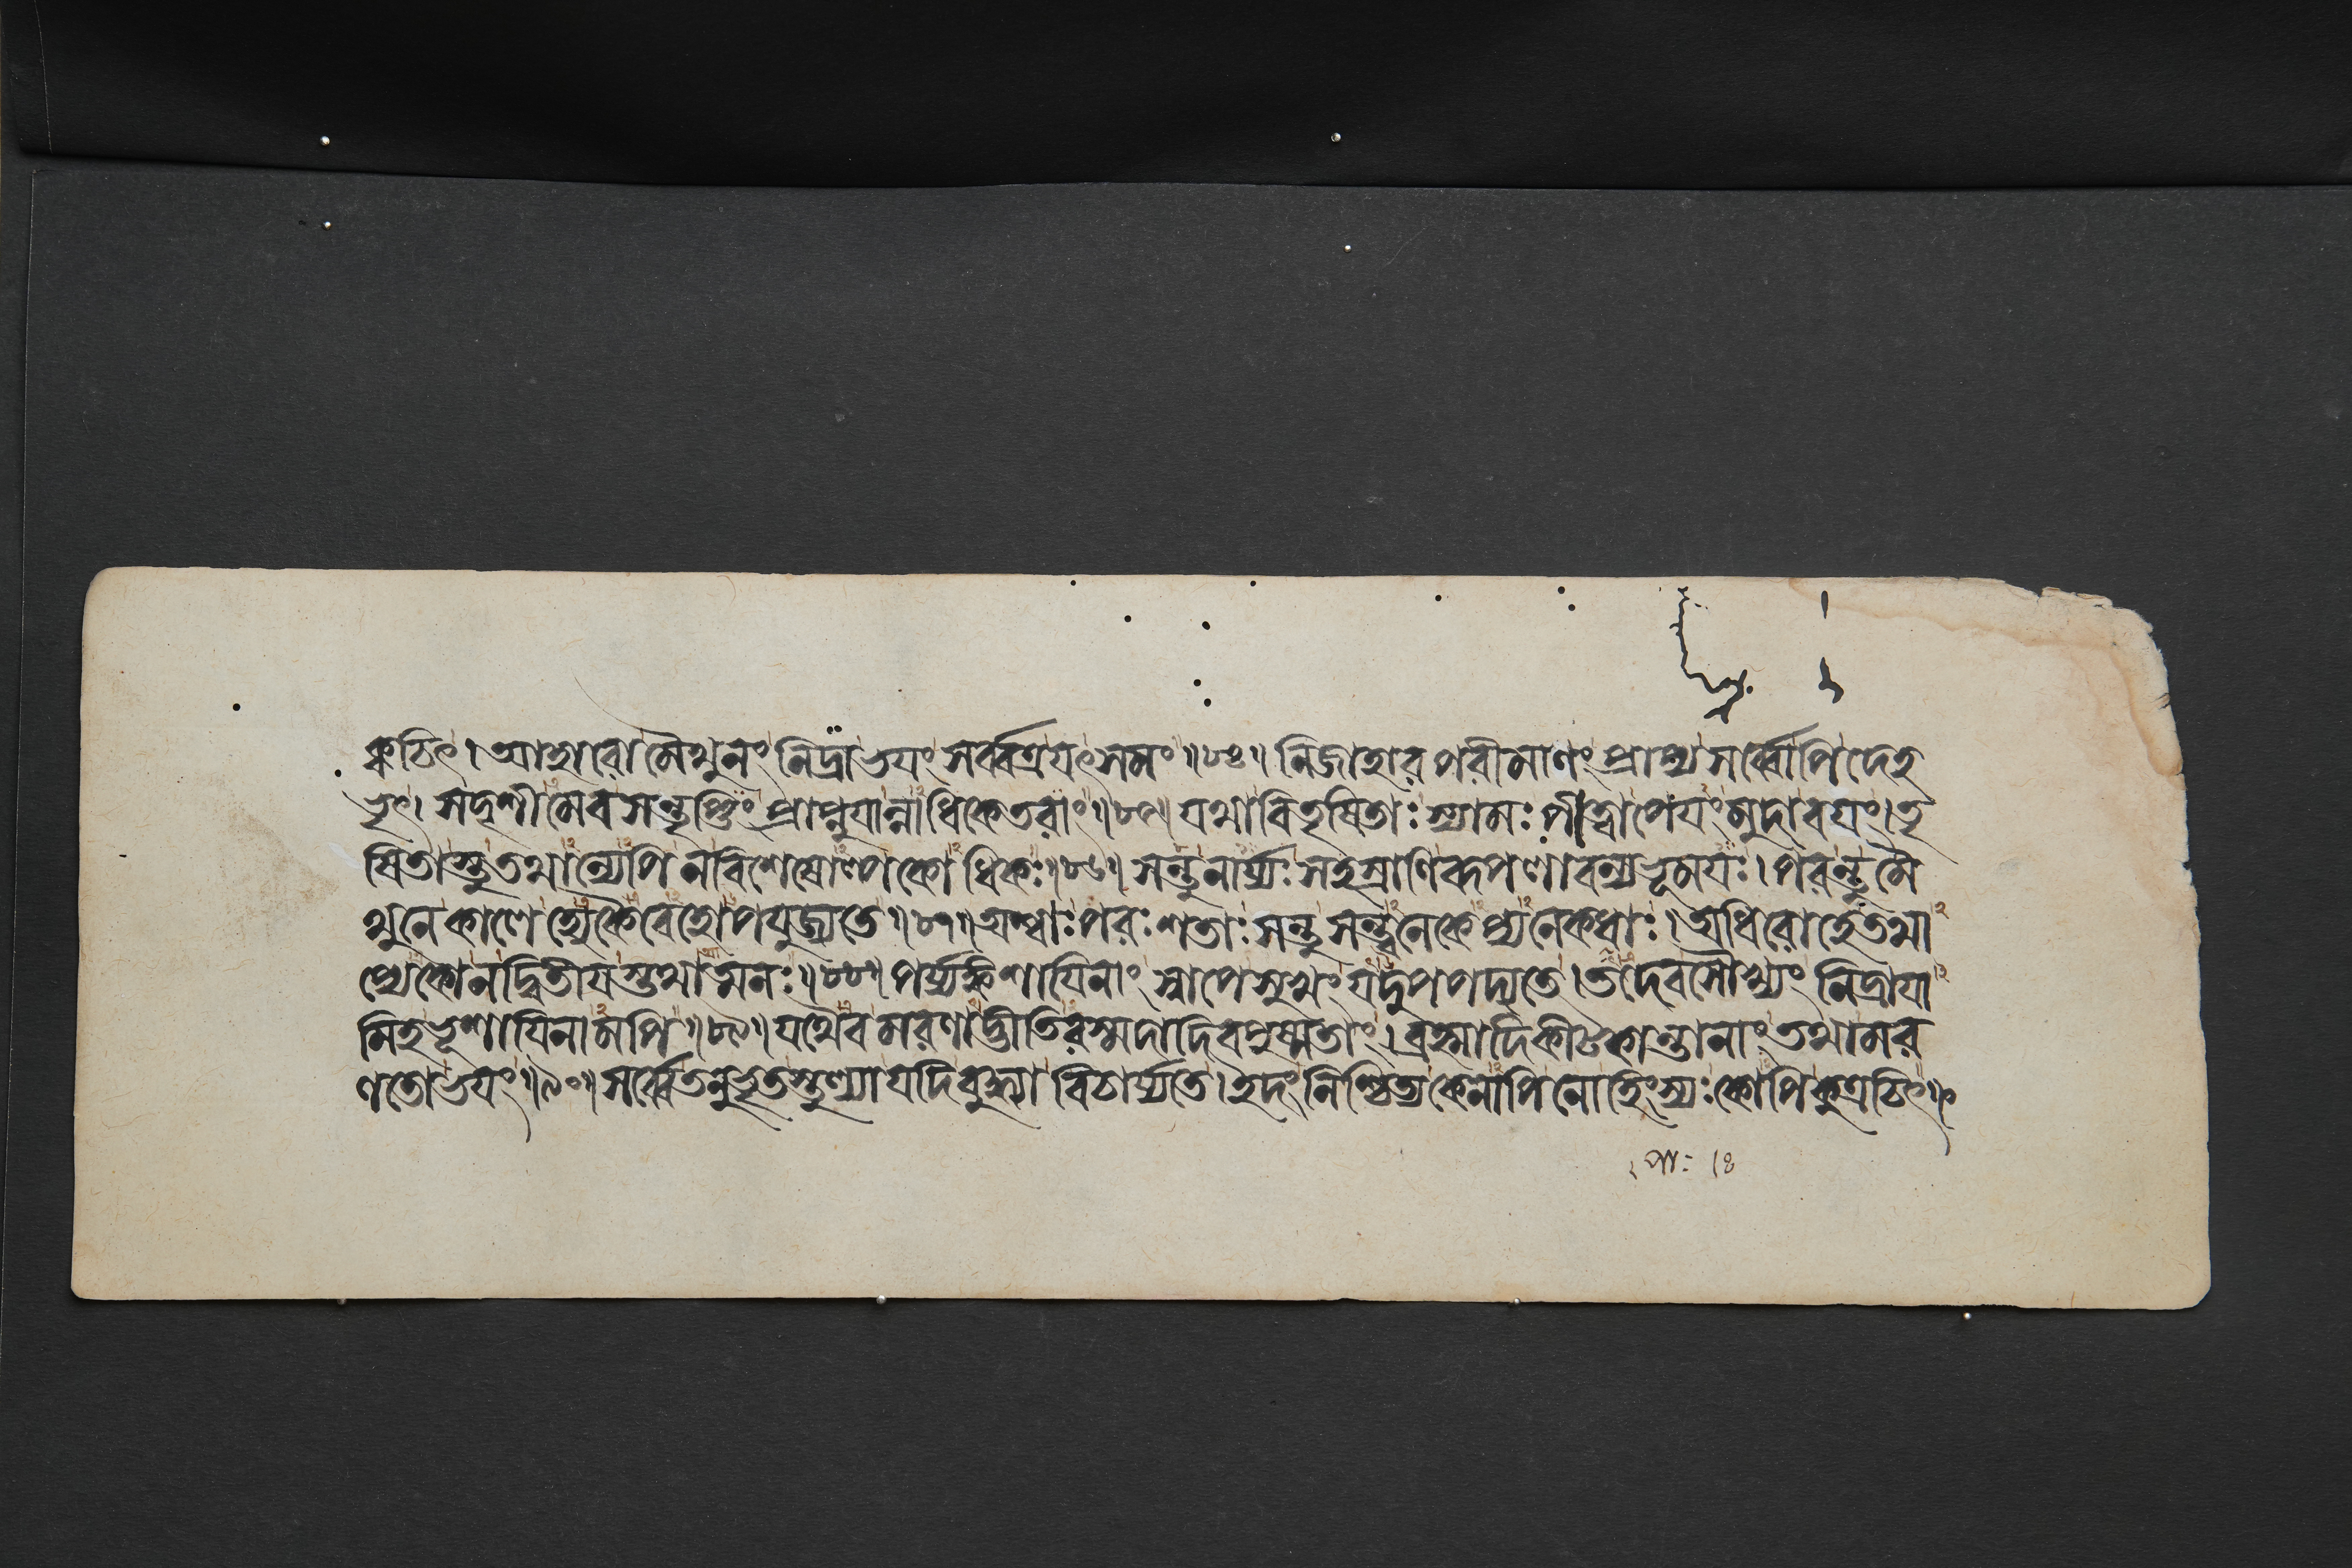 ক্বচিৎ। আহারো মৈথুনং নিদ্রা ভয়ং সর্ব্বত্রযৎসমং॥৮৪॥ নিজাহারপরীমাণং প্রাপ্য সর্ব্বোপি দেহ
ভৃৎ। সদৃশীমেব সন্তৃপ্তিং প্রাপ্নুযান্নাধিকেতরাং॥৮৫॥ যথা বিতৃষিতাঃ স্যামঃ পীত্বা পেযং মুদা বযং। তৃ
ষিতাস্তু তথান্যেপি ন বিশেষোল্পকোধিকঃ॥৮৬॥ সন্তু নার্য্যঃ সহস্রাণি রূপলাবন্যভূময়ঃ। পরন্তু মৈ
থুনে কালে হ্যেকৈবেহোপযুজ্যতে॥৮৭॥ অশ্বাঃ পরঃশতাঃ সন্তু সন্ত্বনেকেপ্যনেকধাঃ। অধিরোহে তথা
প্যেকো ন দ্বিতীযস্তথাত্মনঃ॥৮৮॥ পর্য্যঙ্কশাযিনাং স্বাপে সুখং যদুপপদ্যতে। তদেব সৌখ্যং নিদ্রাযা
মিহ ভূশাযিনামপি॥৮৯॥ যথৈব মরণাদ্ভীতিরস্মদাদিবপুষ্মতাং। ব্রহ্মাদিকীটকান্তানাং তথা মর
ণতো ভয়ং॥৯০॥ সর্ব্বে তনুভৃতস্তুল্যা যদি বুদ্ধ্যা বিচার্য্যতে। ইদং নিশ্চিত্য কেনাপি নো হিংস্যঃ কোপি কুত্রচিৎ॥